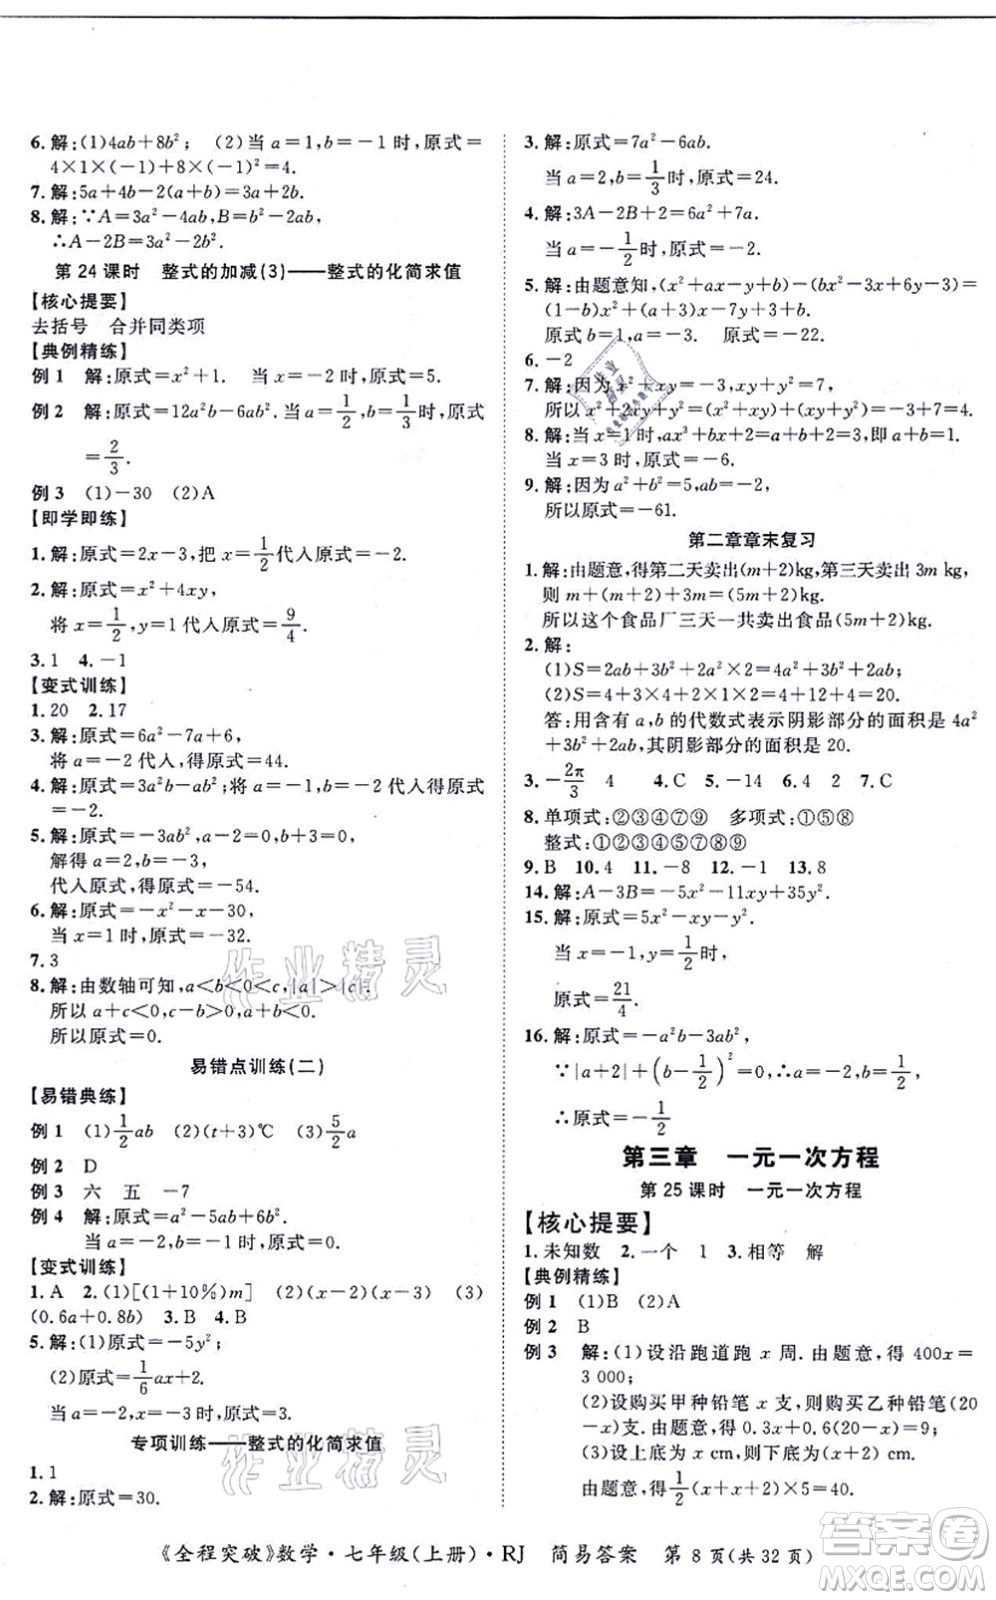 6.解:(1)4ab+8b²; (2)当 a=1,b=-1 时,原式=
4×1×(-1)+8×(-1)²=4.
7.解:5a+4b-2(a+b)=3a+2b.
8.解:∵A=3a²-4ab,B=b²-2ab,
∴A-2B=3a²-2b².
第 24 课时 整式的加减(3)——整式的化简求值
【核心提要】
去括号 合并同类项
【典例精练】
例 1 解:原式=x²+1. 当 x=-2时,原式=5.
例 2 解:原式=12a²b-6ab².当 a=1/2,b=1/3时,原式
=2/3.
例 3 (1)-30 (2)A
【即学即练】
1.解:原式=2x-3,把 x=1/2代入原式=-2.
2.解:原式=x²+4xy,
将 x=1/2,y=1 代入原式=9/4.
3.1 4.-1
【变式训练】
1.20 2.17
3.解:原式=6a²-7a+6,
将 a=-2 代入,得原式=44.
4.解:原式=3a²b-ab²;将 a=-1,b=-2 代入,得
原式=-2.
5.解:原式=-3ab²,a-2=0,b+3=0,
解得 a=2,b=-3,
代入原式,得原式=-54.
6.解:原式=-x²-x-30,
当 x=1 时,原式=-32.
7.3
8.解:由数轴可知,a<b<0<c,|a|>|c|.
所以 a+c<0,c-b>0,a+b<0.
所以原式=0.
易错点训练(二)
【易错典练】
例 1 (1)1/2ab (2)(t+3)℃ (3)5/2a
例 2 D
例 3 六 五 -7
例 4 解:原式=a²-5ab+6b².
当 a=-1,b=-2 时,原式=15.
【变式训练】
1.A 2.(1)[(1+10%)m] (2)(x-2)(x-3) (3)
(0.6a+0.8b) 3.B 4.B
5.解:(1)原式=-5y²;
(2)原式=1/6ax+2.
当 a=-2,x=-3 时,原式=3.
专项训练——整式的化简求值
1.1
2.解:原式=30.
3.解:原式=7a²-6ab.
当 a=2,b=1/3时,原式=24.
4.解:3A-2B+2=6a²+7a.
当 a=-1/2时,原式=-2.
5.解:由题意知,(x²+ax-y+b)-(bx²-3x+6y-3)=
(1-b)x²+(a+3)x-7y+3+b.
原式 b=1,a=-3. 原式=-22.
6.-2
7.解:因为 x²+xy=-3,xy+y²=7,
所以 x²+2xy+y²=(x²+xy)+(xy+y²)=4.
8.解:当 x=1时,ax³+bx+2=a+b+2=3,即 a+b=1.
当 x=3 时,原式=-2.
9.解:因为 a²+b²=5,ab=-2,
所以原式=-61.
第二章章末复习
1.解:由题意,得第二天卖出(m+2)kg,第三天卖出 3m kg,
则 m+(m+2)+3m=(5m+2)kg.
所以这个食品厂三天一共卖出食品(5m+2)kg.
2.解:
(1)S=2ab+3b²+2a²×2=4a²+2ab+3b²;
(2)S=4+3×4+2×1×2=4+12+4=20.
答:用含有 a,b 的代数式表示阴影部分的面积是 4a²
+2ab+3b²,其阴影部分的面积是 20.
3.-2π/3 4 4.C 5.-14 6.4 2 7.C
8.单项式:②③④⑦⑨ 多项式:①⑤⑧
整式:①②③④⑤⑦⑧⑨
9.B 10.4 11.-8 12.-1 13.8
14.解:A-3B=-5x²-11xy+35y².
15.解:原式=5x²-xy-y².
当 x=-1,y=-1/2时,
原式=21/4.
16.解:原式=-a²b-3ab²,
∵|a+2|+(b-1/2)²=0,∴a=-2,b=1/2,
∴原式=-1/2
第三章 一元一次方程
第 25 课时 一元一次方程
【核心提要】
1.未知数 2.一个 1 3.相等 解
【典例精练】
例 1 (1)B (2)A
例 2 B
例 3 解:(1)设沿跑道跑 x 周. 由题意,得 400x=
3 000;
(2)设购买甲种铅笔 x 支,则购买乙种铅笔(20
-x)支. 由题意,得 0.3x+0.6(20-x)=9;
(3)设上底为 x cm,则下底为(x+2) cm.
由题意,得1/2(x+x+2)×5=40.
《全程突破》数学·七年级(上册)·RJ 简易答案 第 8 页(共 32 页)
作业精灵
作业精灵
答案圈
MXQE.COM